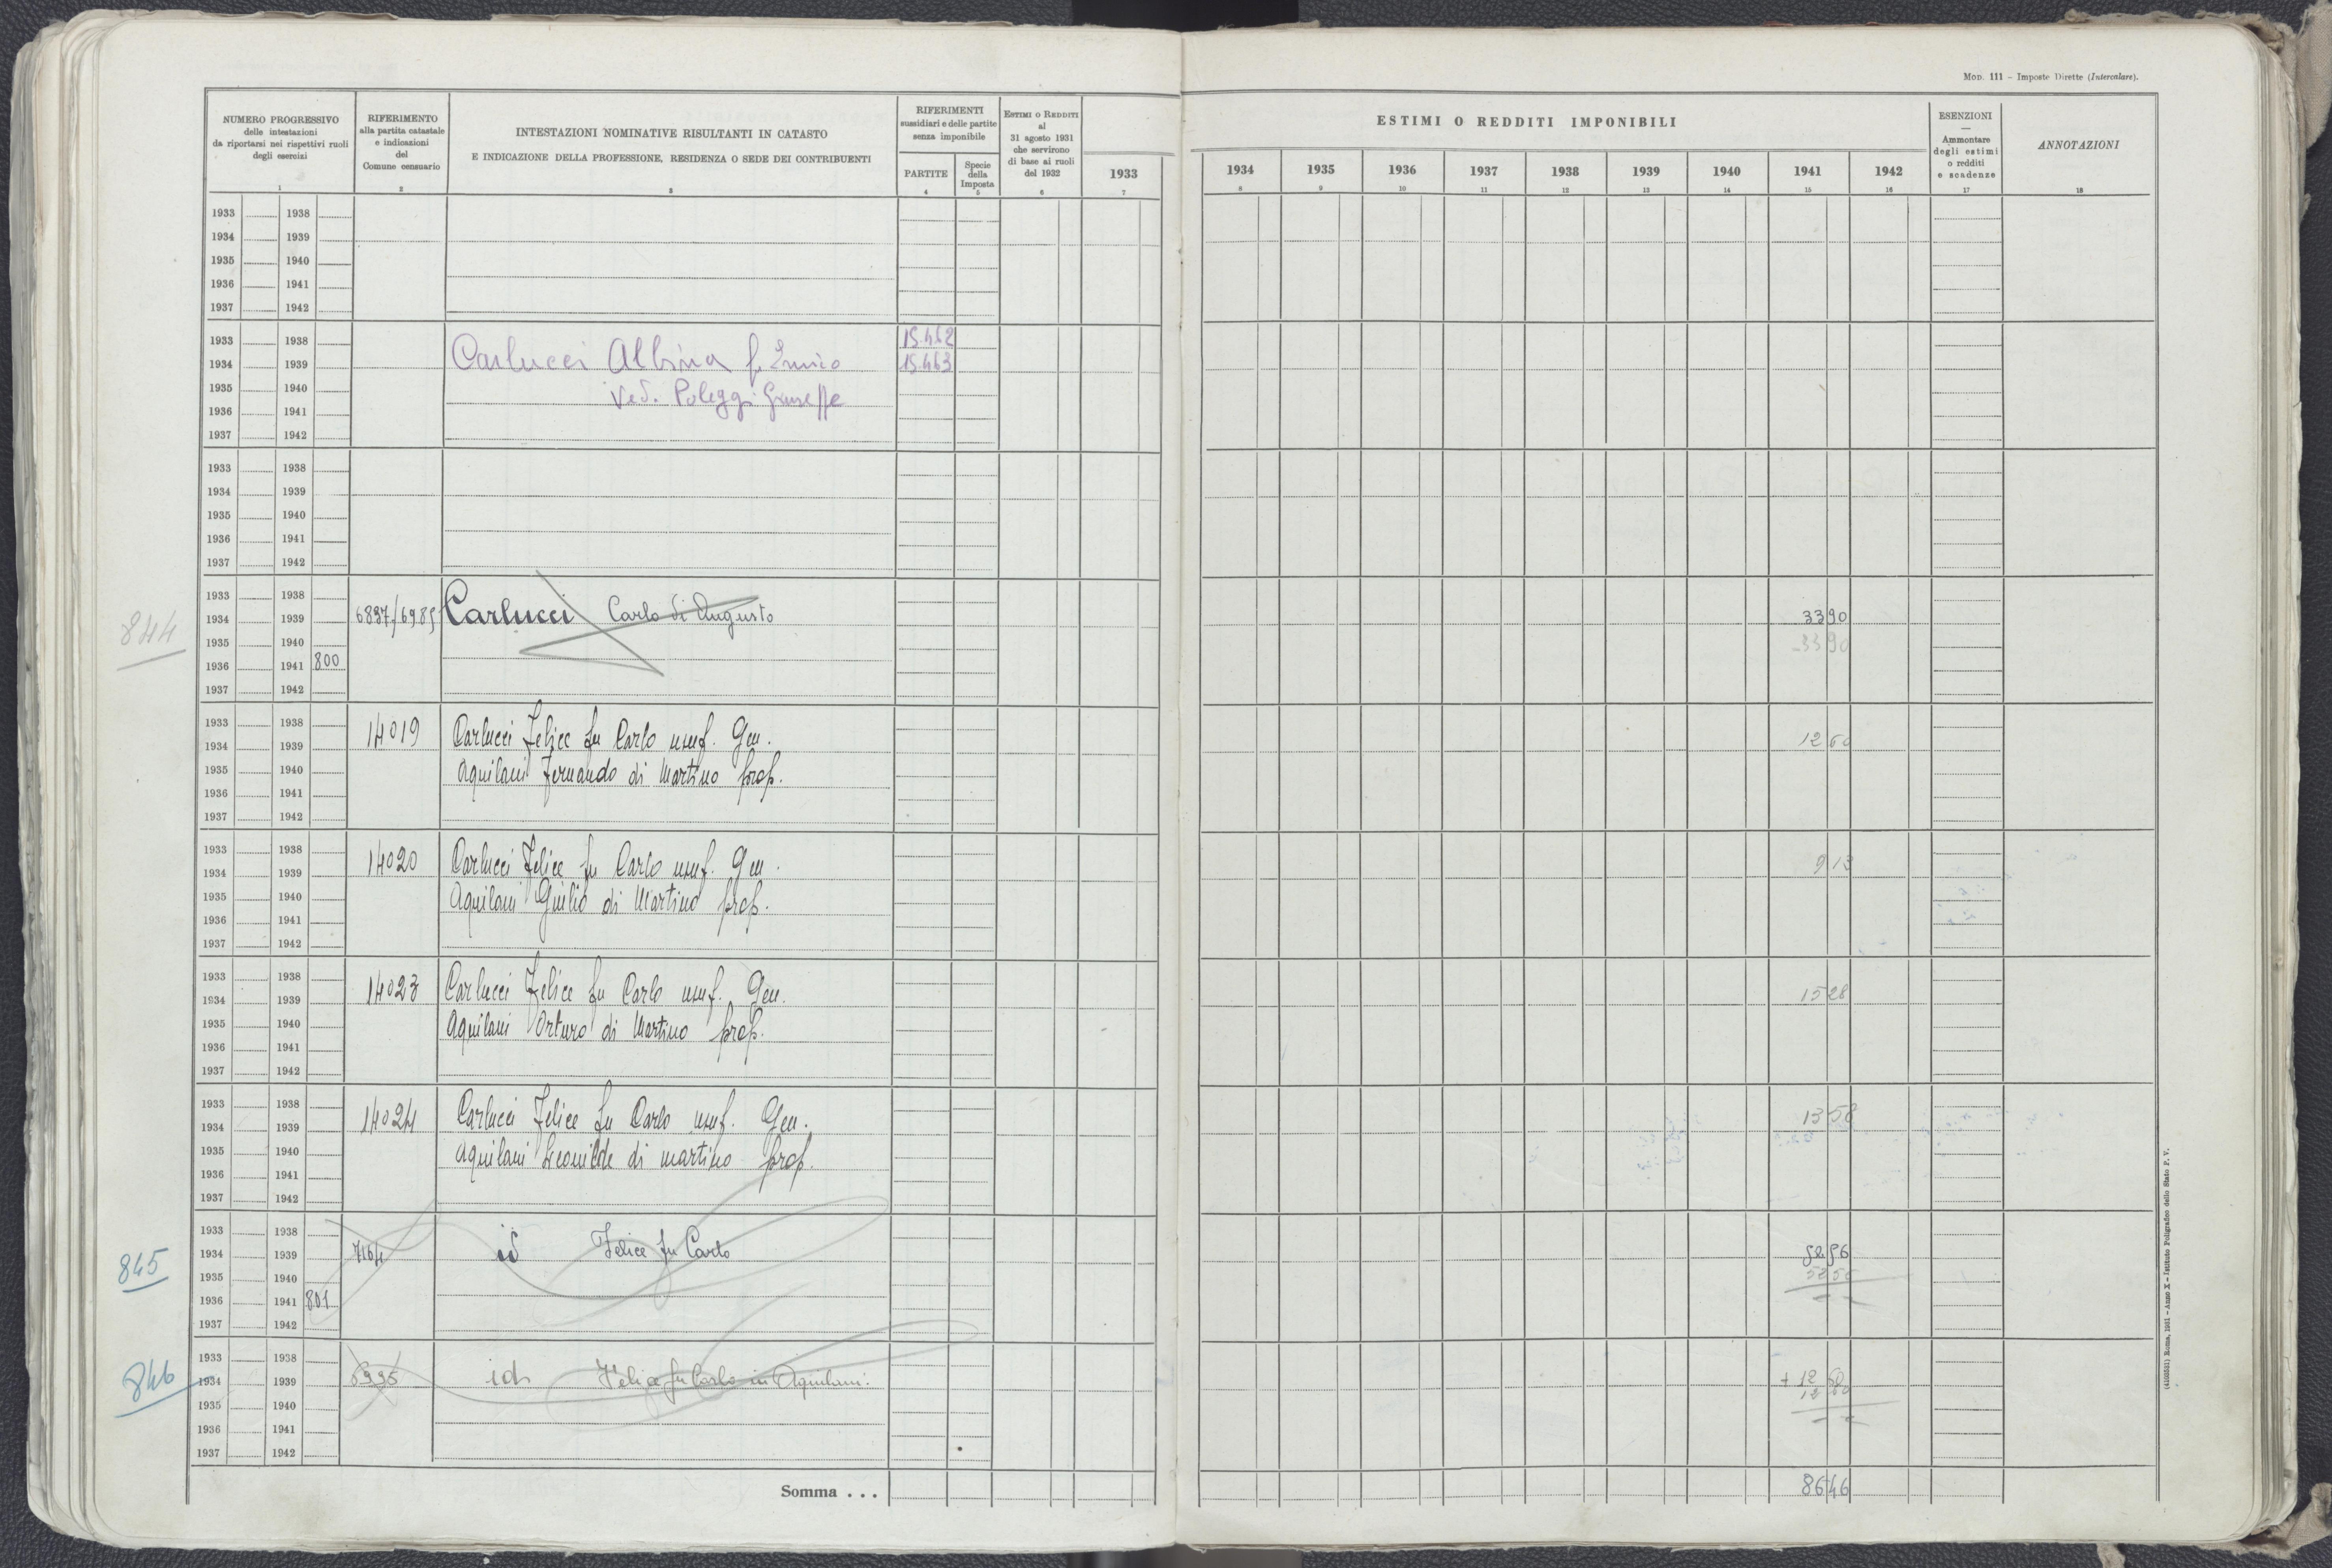 MOD. 111 – Imposte Dirette (Intercalare).
NUMERO PROGRESSIVO
delle intestazioni
da riportarsi nei rispettivi ruoli
degli esercizi
1
RIFERIMENTO
alla partita catastale
e indicazioni
del
Comune censuario
2
INTESTAZIONI NOMINATIVE RISULTANTI IN CATASTO
E INDICAZIONE DELLA PROFESSIONE, RESIDENZA O SEDE DEI CONTRIBUENTI
3
RIFERIMENTI
sussidiari e delle partite
senza imponibile
PARTITE
4
Specie
della
Imposta
5
ESTIMI O REDDITI
al
31 agosto 1931
che servirono
di base ai ruoli
del 1932
6
ESTIMI O REDDITI IMPONIBILI
1933 1934 1935 1936 1937 1938 1939 1940 1941 1942
7 8 9 10 11 12 13 14 15 16
ESENZIONI
—
Ammontare
degli estimi
o redditi
e scadenze
17
ANNOTAZIONI
18
1933 1938
1934 1939
1935 1940
1936 1941
1937 1942
1933 1938 15.462
1934 1939 Carlucci Albina fu 15.463
1935 1940 Ved. Poleggi Giuseppe
1936 1941
1937 1942
1933 1938
1934 1939
1935 1940
1936 1941
1937 1942
1933 1938
844 1934 1939 Carlucci Carlo di Augusto 3390
1935 1940 -3390
1936 1941 800
1937 1942
1933 1938 14019 Carlucci Felice fu Carlo usuf. Gen.
1934 1939 1260
1935 1940 Aquilani Fernando di Martino prop.
1936 1941
1937 1942
1933 1938 14020 Carlucci Felice fu Carlo usuf. Gen.
1934 1939 913
1935 1940 Aquilani Giulio di Martino prop.
1936 1941
1937 1942
1933 1938 14023 Carlucci Felice fu Carlo usuf. Gen.
1934 1939 1528
1935 1940 Aquilani Arturo di Martino prop.
1936 1941
1937 1942
1933 1938 14024 Carlucci Felice fu Carlo usuf. Gen. 1358
1934 1939
1935 1940 Aquilani Leonilde di Martino prop.
1936 1941
1937 1942
1933 1938
845 1934 1939 7164 id Felice fu Carlo
1935 1940
1936 1941 801
1937 1942
1933 1938
846 1934 1939 id. Felice fu Carlo in Aquilani
1935 1940
1936 1941
1937 1942
Somma . . . 8646
(4103551) Roma, 1931 – Anno X – Istituto Poligrafico dello Stato P. V.